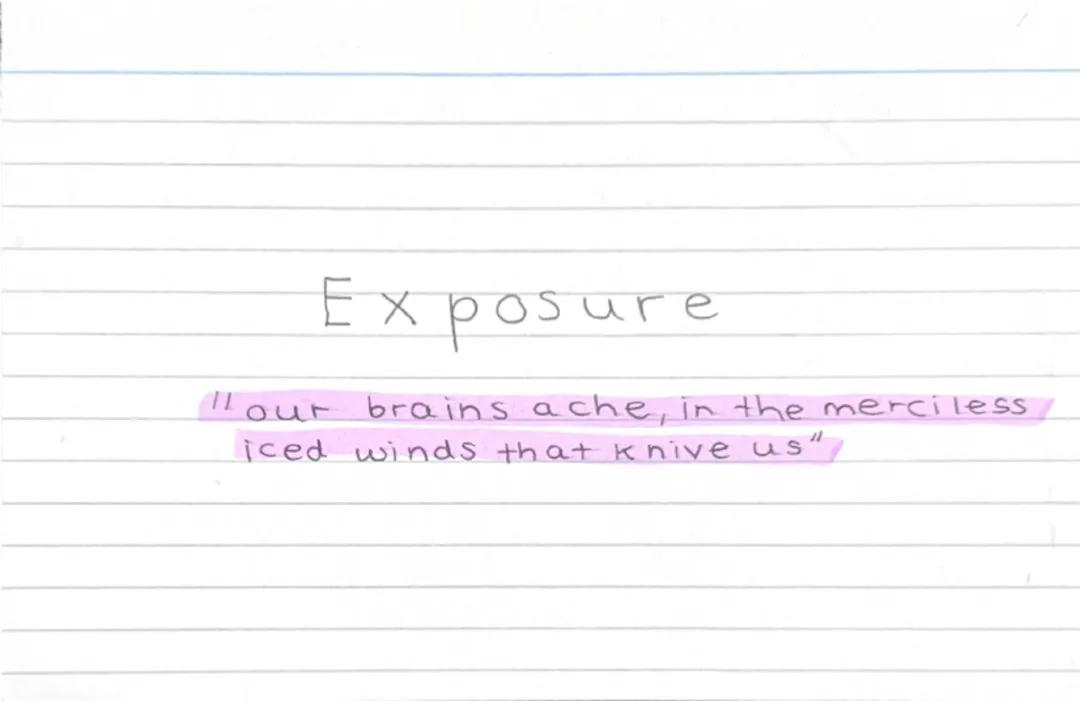 Exposure
"our brains ache, in the merciless
iced winds that knive us"